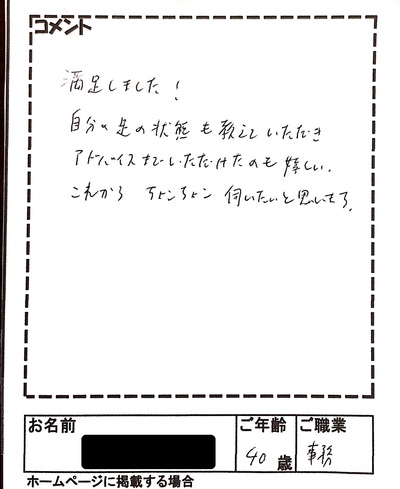 コメント
満足しました！
自分の足の状態も教えていただき
アドバイスまでいただけたのも嬉しい。
これから ちょこちょこ 伺いたいと思います。
お名前 ご年齢 ご職業
40歳 事務
ホームページに掲載する場合